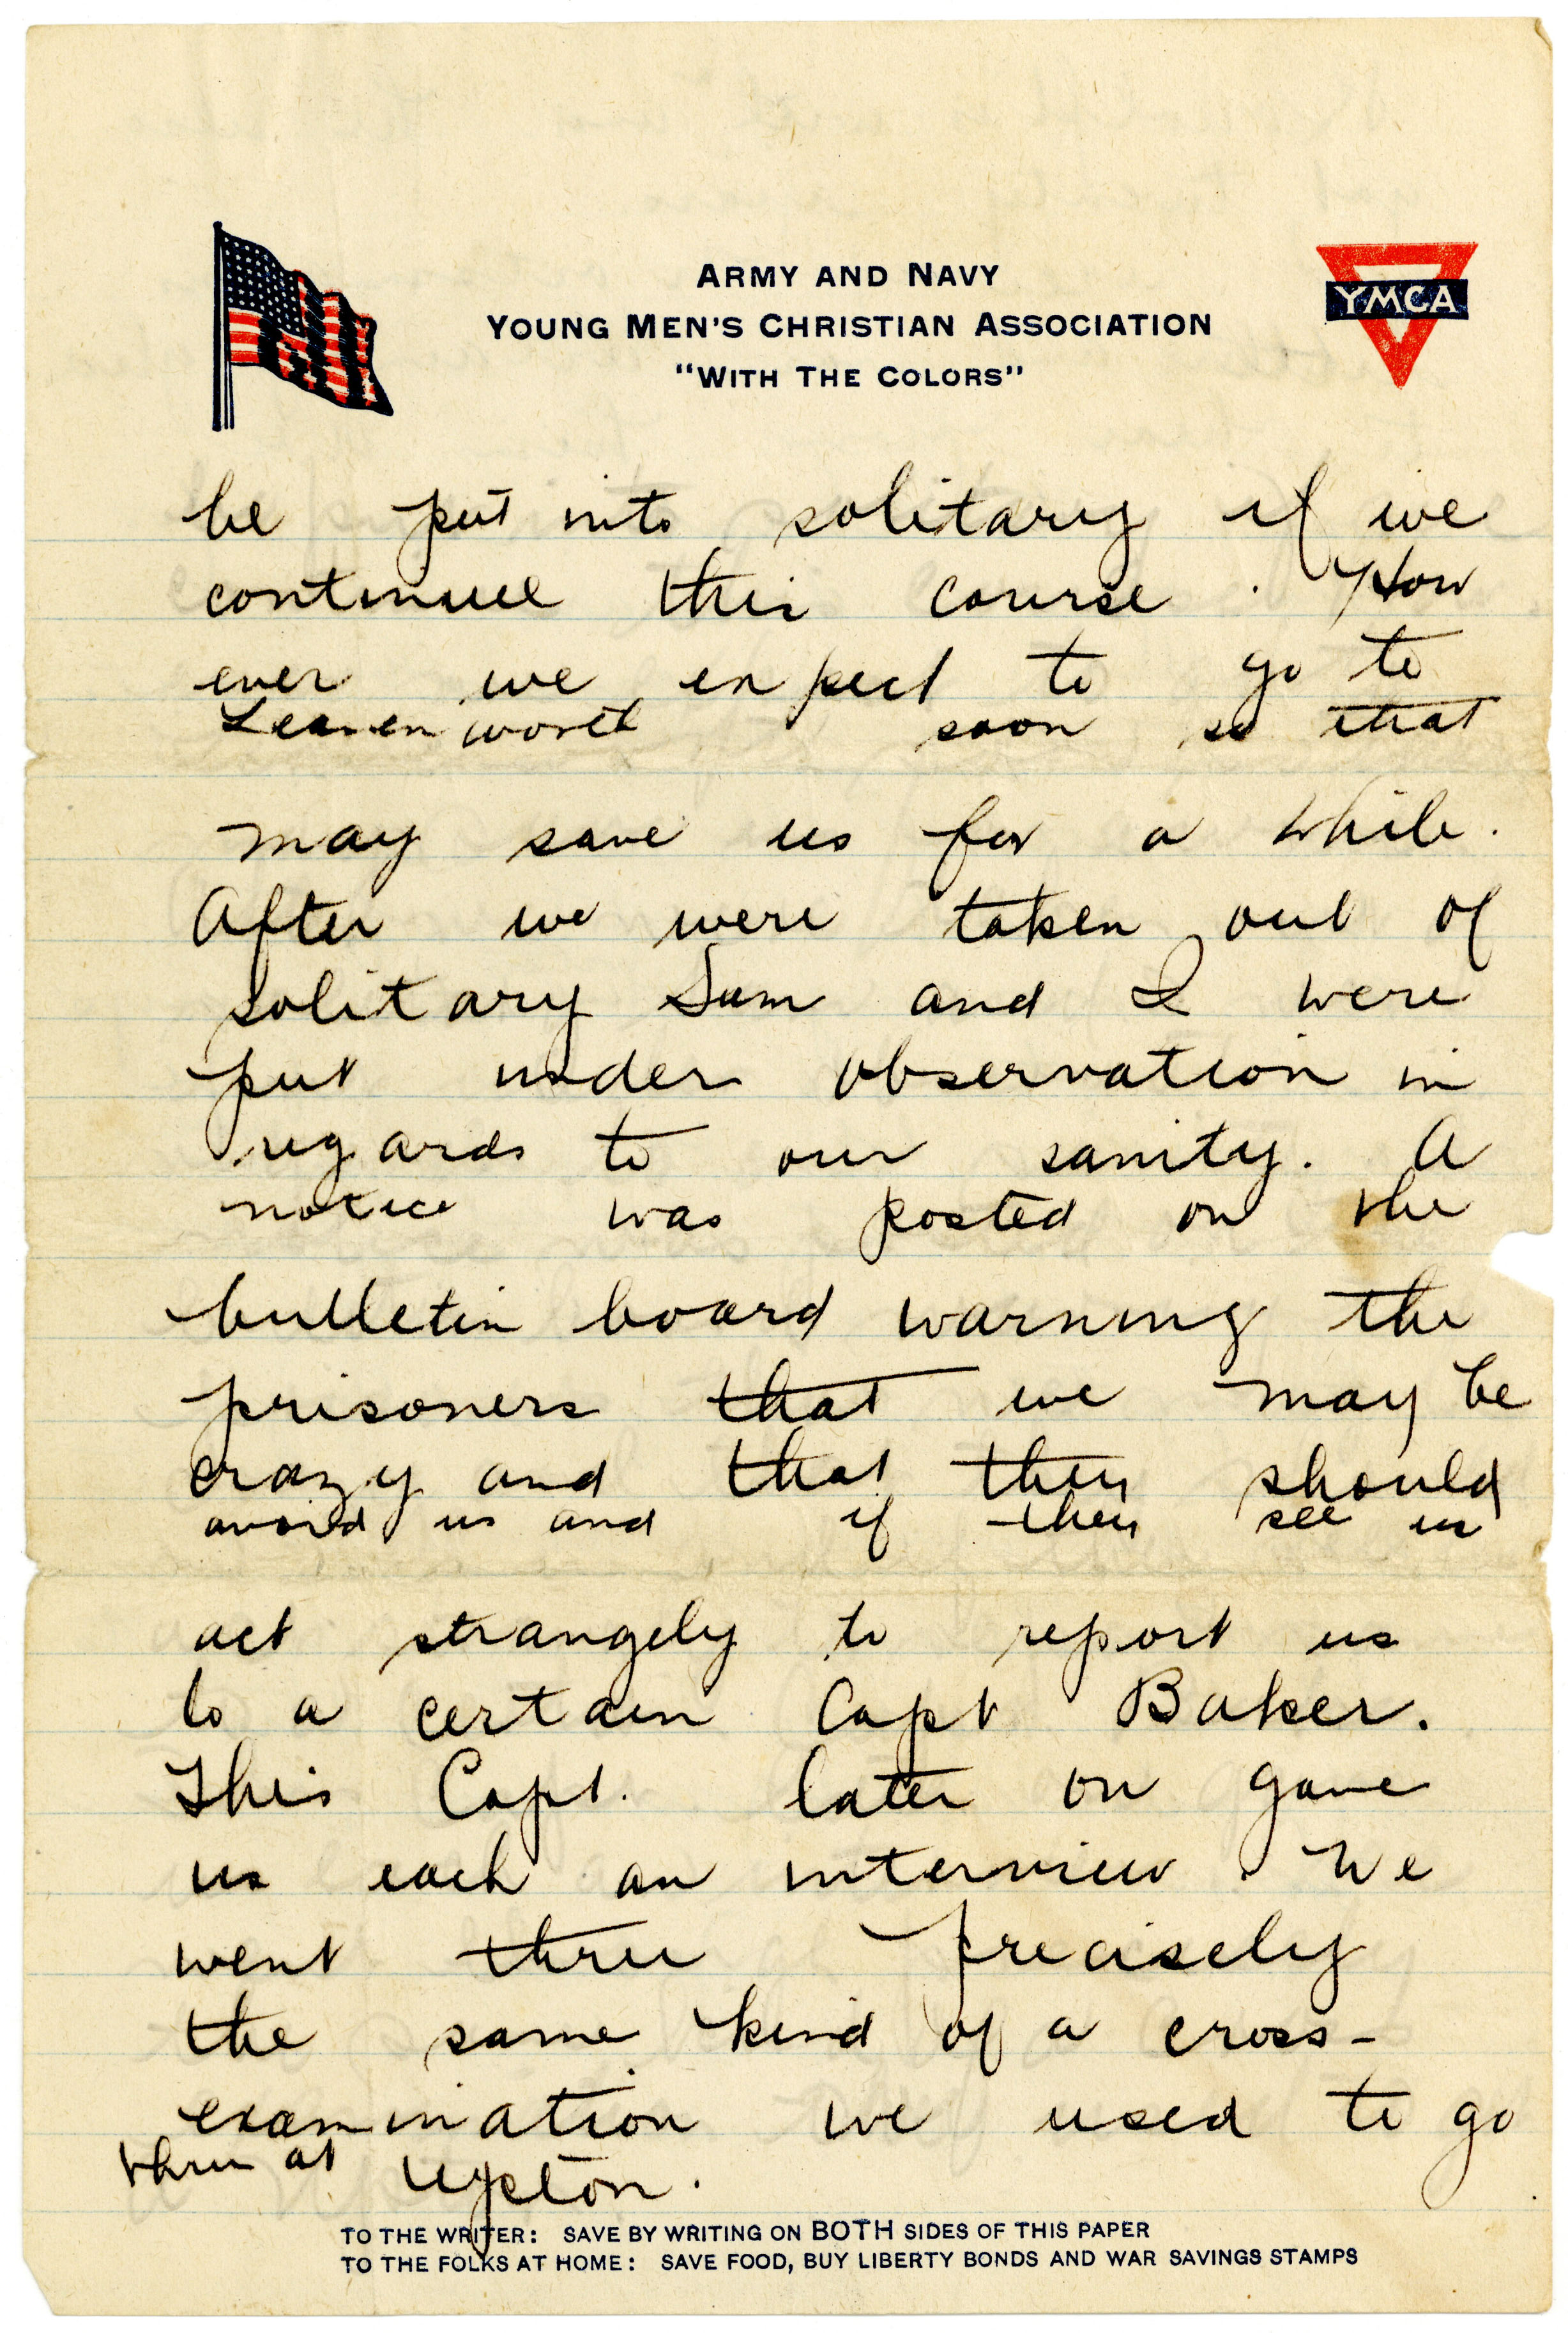 ARMY AND NAVY
YOUNG MEN'S CHRISTIAN ASSOCIATION
"WITH THE COLORS"
YMCA
be put into solitary if we
continue this course. How
ever we expect to go to
Leavenworth soon so that
may save us for a while.
After we were taken out of
solitary Sam and I were
put under observation in
regards to our sanity. A
notice was posted on the
bulletin board warning the
prisoners that we may be
crazy and that they should
avoid us and if they see us
act strangely to report us
to a certain Capt Baker.
This Capt. later on gave
us each an interview. We
went thru precisely
the same kind of a cross-
examination we used to go
thru at Upton.
TO THE WRITER: SAVE BY WRITING ON BOTH SIDES OF THIS PAPER
TO THE FOLKS AT HOME: SAVE FOOD, BUY LIBERTY BONDS AND WAR SAVINGS STAMPS